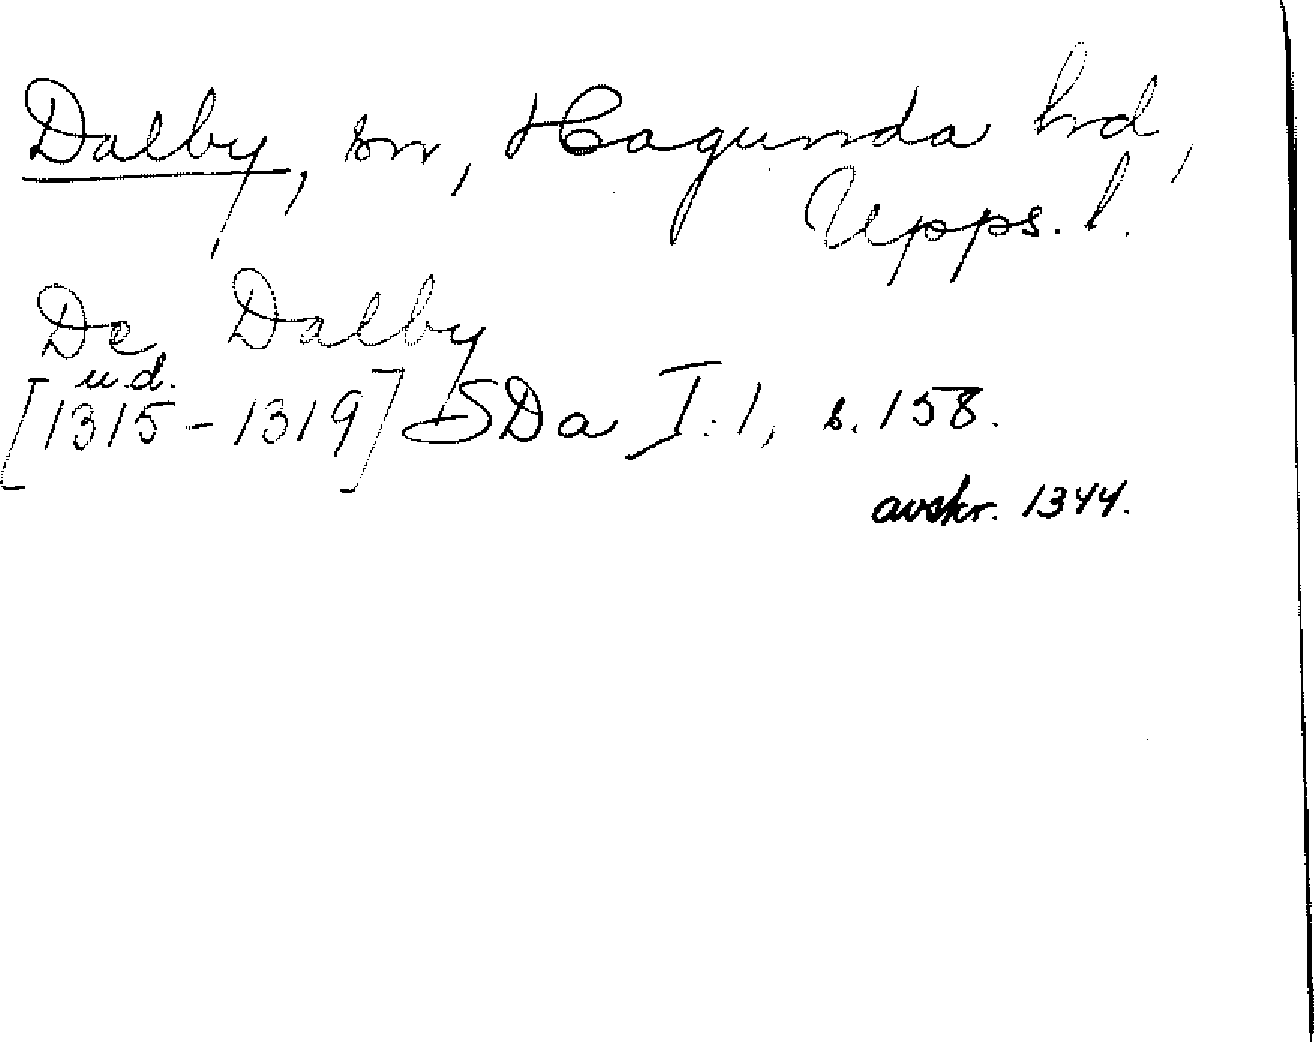 Dalby, sn, Hagunda hd,
Upps. l.
De Dalby
u.d.
[1315-1319] SDa I:1, s. 158.
avskr. 1344.